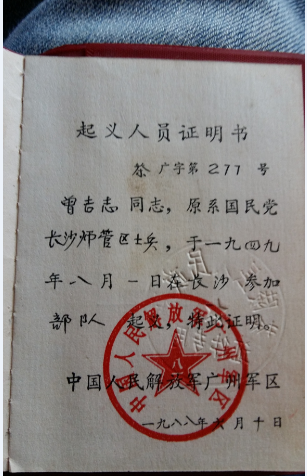 起义人员证明书
广字第277号
曾吉志同志，原系国民党
长沙师管区士兵，于一九四九
年八月一日在长沙参加
部队起义，特此证明。
中国人民解放军广州军区
一九八八年六月十日
中国人民解放军广州军区
八一